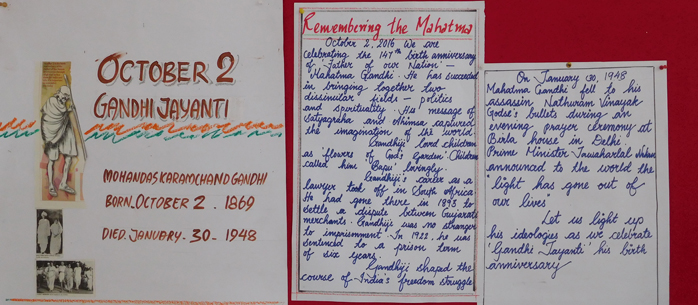 OCTOBER 2
GANDHI JAYANTI
MOHANDAS KARAMCHAND GANDHI
BORN. OCTOBER 2. 1869
DIED. JANUARY. 30 - 1948
Remembering the Mahatma
October 2, 2016 We are
celebrating the 147th birth anniversary
of 'Father of our Nation' -
'Mahatma Gandhi'. He has succeeded
in bringing together two
dissimilar fields - politics
and spirituality. His message of
Satyagraha and Ahimsa captured
the imagination of the world.
Gandhiji lovd children
as 'flowers of God's Garden'. Children
called him 'Bapu' lovingly.
Gandhiji's career as a
lawyer took off in South Africa.
He had gone there in 1893 to
settle a dispute between Gujarati
merchants. Gandhiji was no stranger
to imprisonment. In 1922, he was
sentenced to a prison term
of six years.
Gandhiji shaped the
course of India's freedom struggle
On January 30, 1948
Mahatma Gandhi fell to his
assassin Nathuram Vinayak
Godse's bullets during an
evening prayer ceremony at
Birla house in Delhi.
Prime Minister Jawaharlal Nehru
announced to the world the
"light has gone out of
our lives"
Let us light up
his ideologies as we celebrate
'Gandhi Jayanti' his birth
anniversary